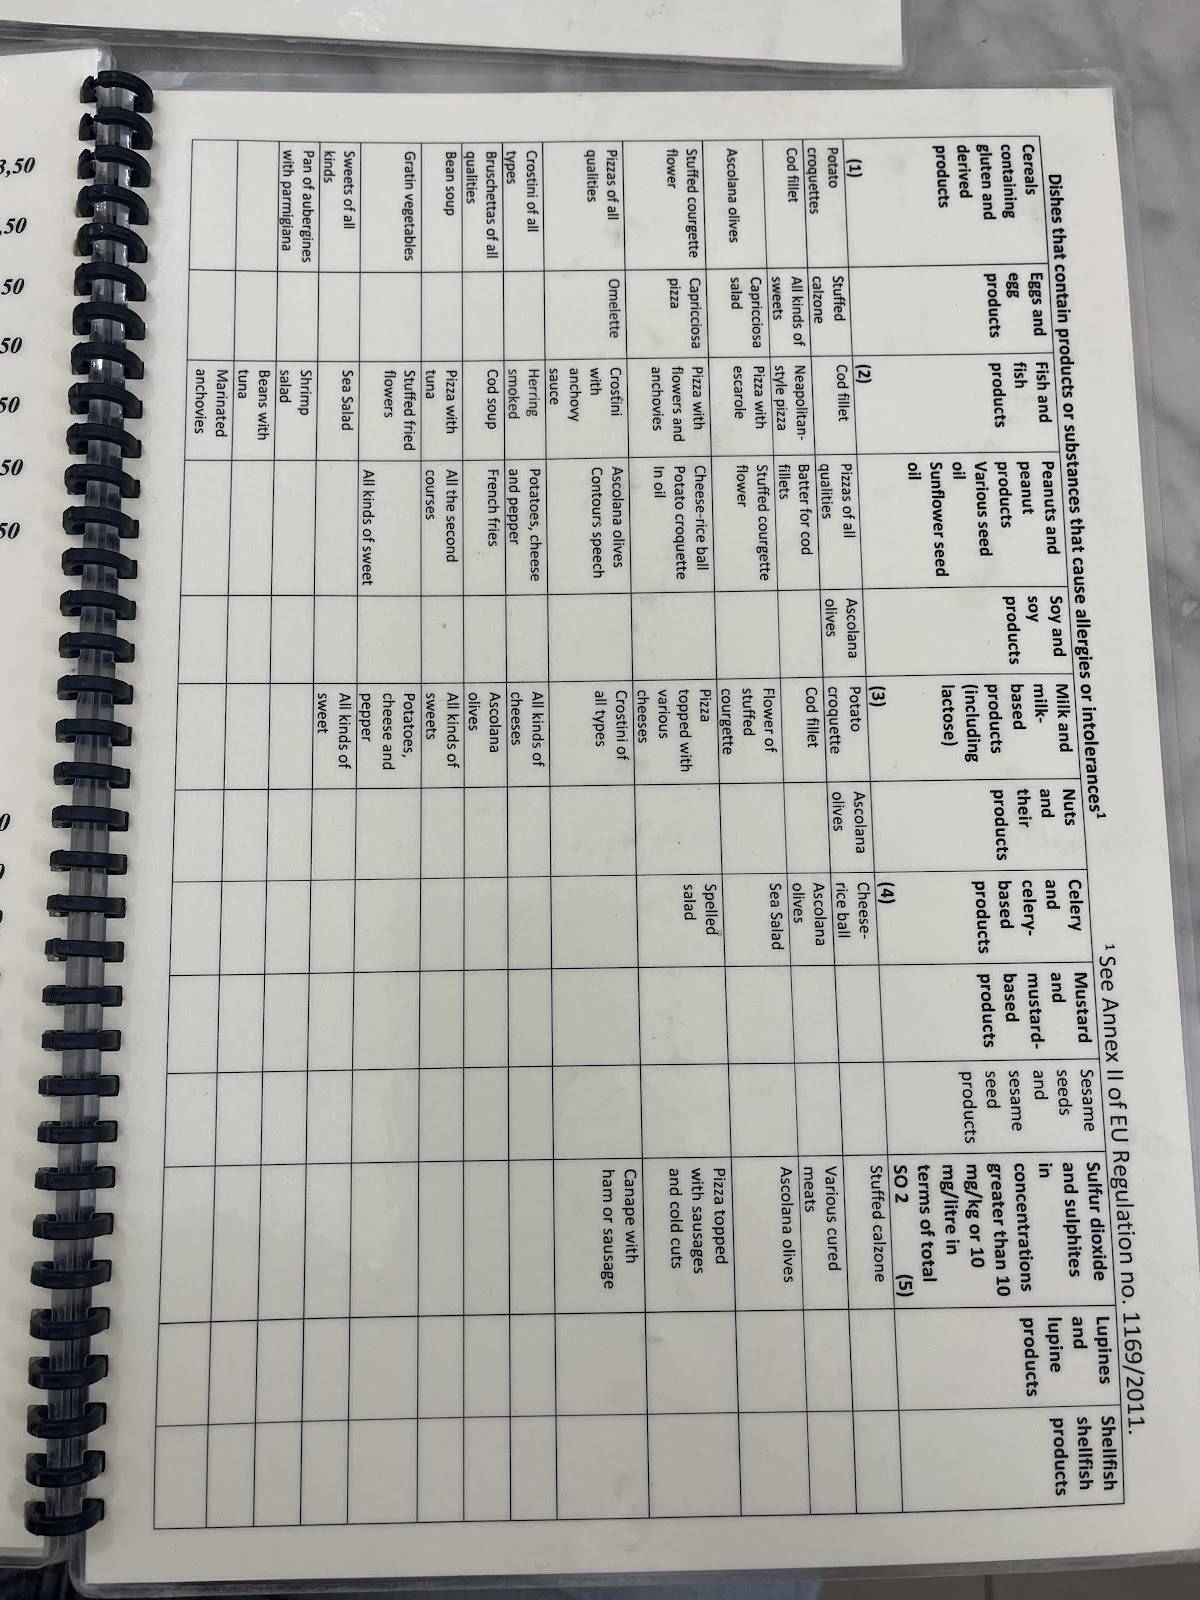 ¹ See Annex II of EU Regulation no. 1169/2011.
Dishes that contain products or substances that cause allergies or intolerances¹
Cereals
containing
gluten and
derived
products
(1)
Eggs and
egg
products
Fish and
fish
products
(2)
Peanuts and
peanut
products
Various seed
oil
Sunflower seed
oil
Soy and
soy
products
Milk and
milk-
based
products
(including
lactose)
(3)
Nuts
and
their
products
Celery
and
celery-
based
products
(4)
Mustard
and
mustard-
based
products
Sesame
seeds
and
sesame
seed
products
Sulfur dioxide
and sulphites
in
concentrations
greater than 10
mg/kg or 10
mg/litre in
terms of total
SO 2 (5)
Lupines
and
lupine
products
Shellfish
shellfish
products
Potato
croquettes
Stuffed
calzone
Cod fillet
Pizzas of all
qualities
Ascolana
olives
Potato
croquette
Ascolana
olives
Cheese-
rice ball
Stuffed calzone
Cod fillet
All kinds of
sweets
Neapolitan-
style pizza
Batter for cod
fillets
Cod fillet
Ascolana
olives
Various cured
meats
Ascolana olives
Capricciosa
salad
Pizza with
escarole
Stuffed courgette
flower
Flower of
stuffed
courgette
Sea Salad
Ascolana olives
Stuffed courgette
flower
Capricciosa
pizza
Pizza with
flowers and
anchovies
Cheese-rice ball
Potato croquette
In oil
Pizza
topped with
various
cheeses
Spelled
salad
Pizza topped
with sausages
and cold cuts
Pizzas of all
qualities
Omelette
Crostini
with
anchovy
sauce
Ascolana olives
Contours speech
Crostini of
all types
Canape with
ham or sausage
Crostini of all
types
Herring
smoked
Potatoes, cheese
and pepper
All kinds of
cheeses
Bruschettas of all
qualities
Cod soup
French fries
Ascolana
olives
Bean soup
Pizza with
tuna
All the second
courses
All kinds of
sweets
Gratin vegetables
Stuffed fried
flowers
All kinds of sweet
Potatoes,
cheese and
pepper
Sweets of all
kinds
Sea Salad
All kinds of
sweet
Pan of aubergines
with parmigiana
Shrimp
salad
Beans with
tuna
Marinated
anchovies
3,50
,50
50
50
50
50
50
0